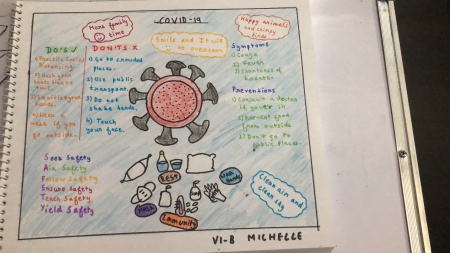 COVID-19
More family
time
Smile and It will
be overcome
Happy animals
and chirpy
birds
DO'S ✓
1) Practice Social
Distancing.
2) Wash your
hands
4) Wear a
mask if you
go outside.
DON'TS X
1) Go to crowded
places.
2) Use public
transport
3) Do not
shake hands.
4) Touch
your face.
Symptoms
1) Cough
2) Fever
3) Shortness of
breath
Preventions
1) Consult a doctor
if you're
2) Prevent
food from outside
3) Don't go to
public places
Seek Safety
Aim Safety
Follow Safety
Ensure Safety
Teach Safety
Yield Safety
REST
Wash Hands
MASK
Immunity
Clean air and
clean sky
VI-B MICHELLE